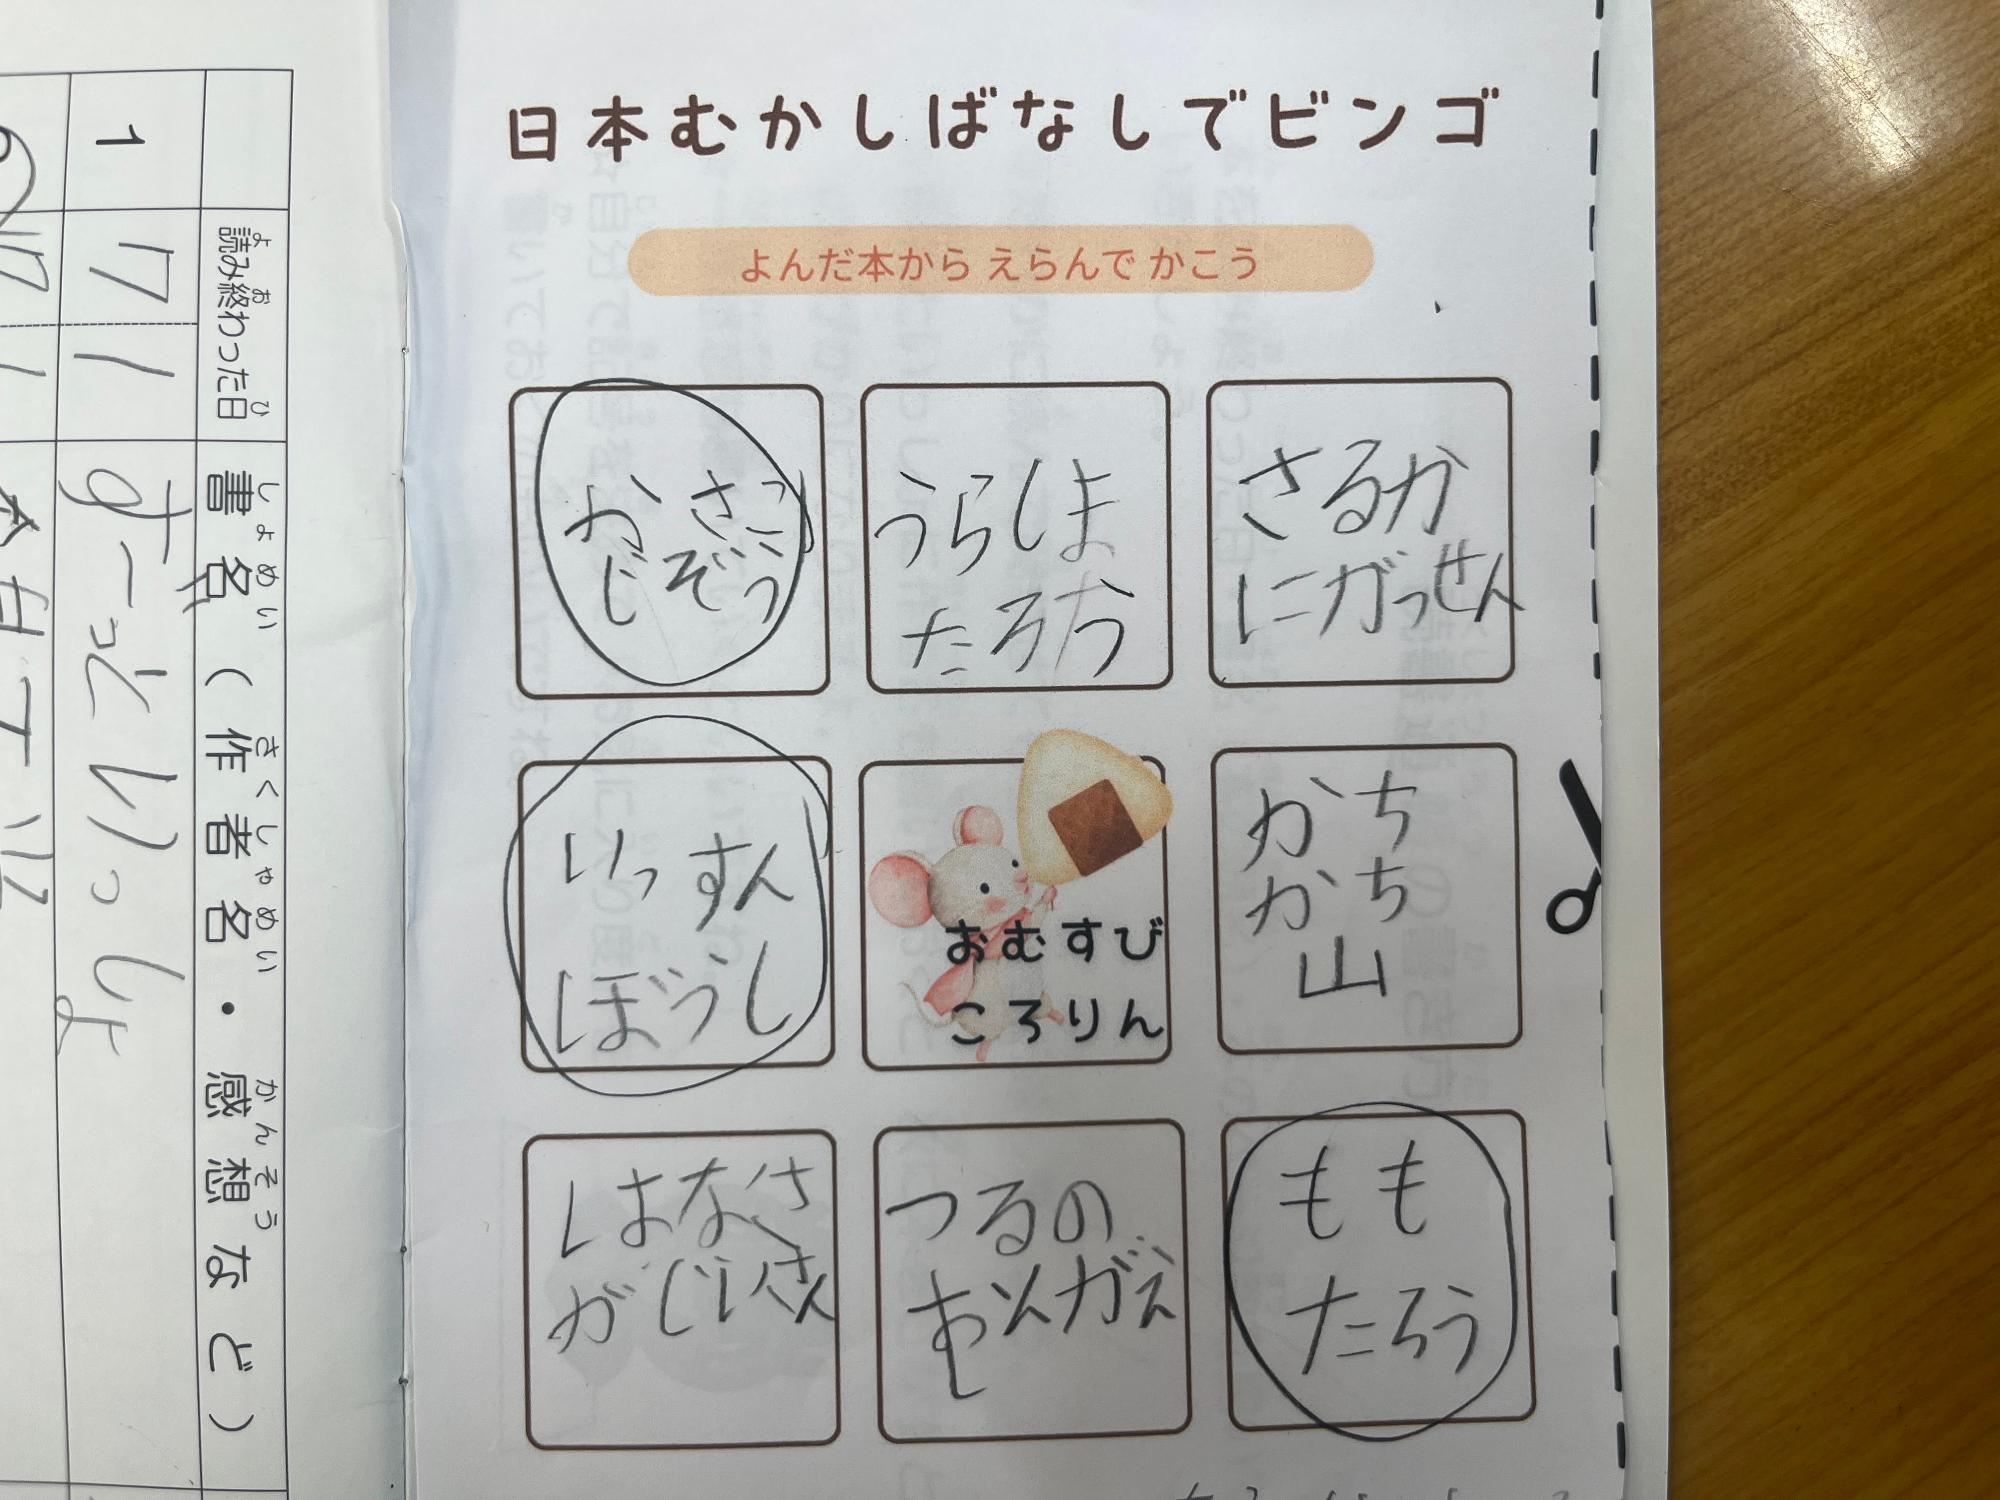 日本むかしばなしでビンゴ
よんだ本から えらんで かこう
かさこ
じぞう
うらしま
たろう
さるか
にがっせん
いっすん
ぼうし
おむすび
ころりん
かち
かち
山
はなさ
がじいさん
つるの
おんがえ
し
もも
たろう
1
読み終わった日
よ お ひ
書名(作者名・感想など)
しょめい さくしゃめい かんそう
7 1
ずーっといっしょ